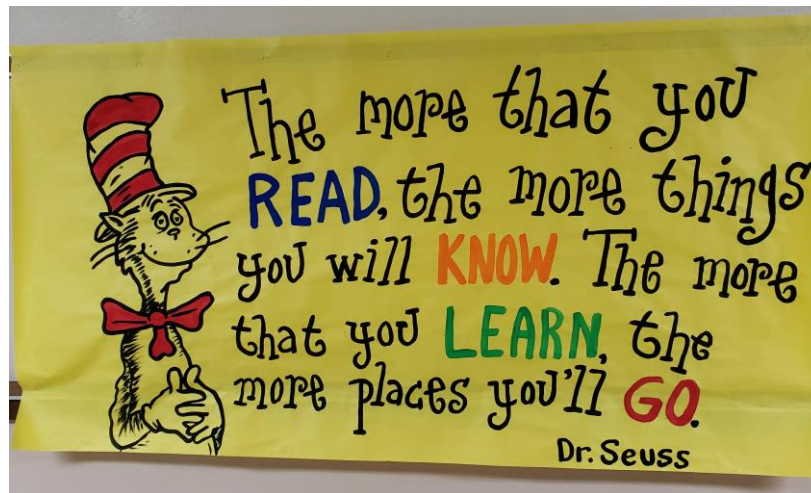 The more that you
READ, the more things
you will KNOW. The more
that you LEARN, the
more places you'll GO.
Dr. Seuss